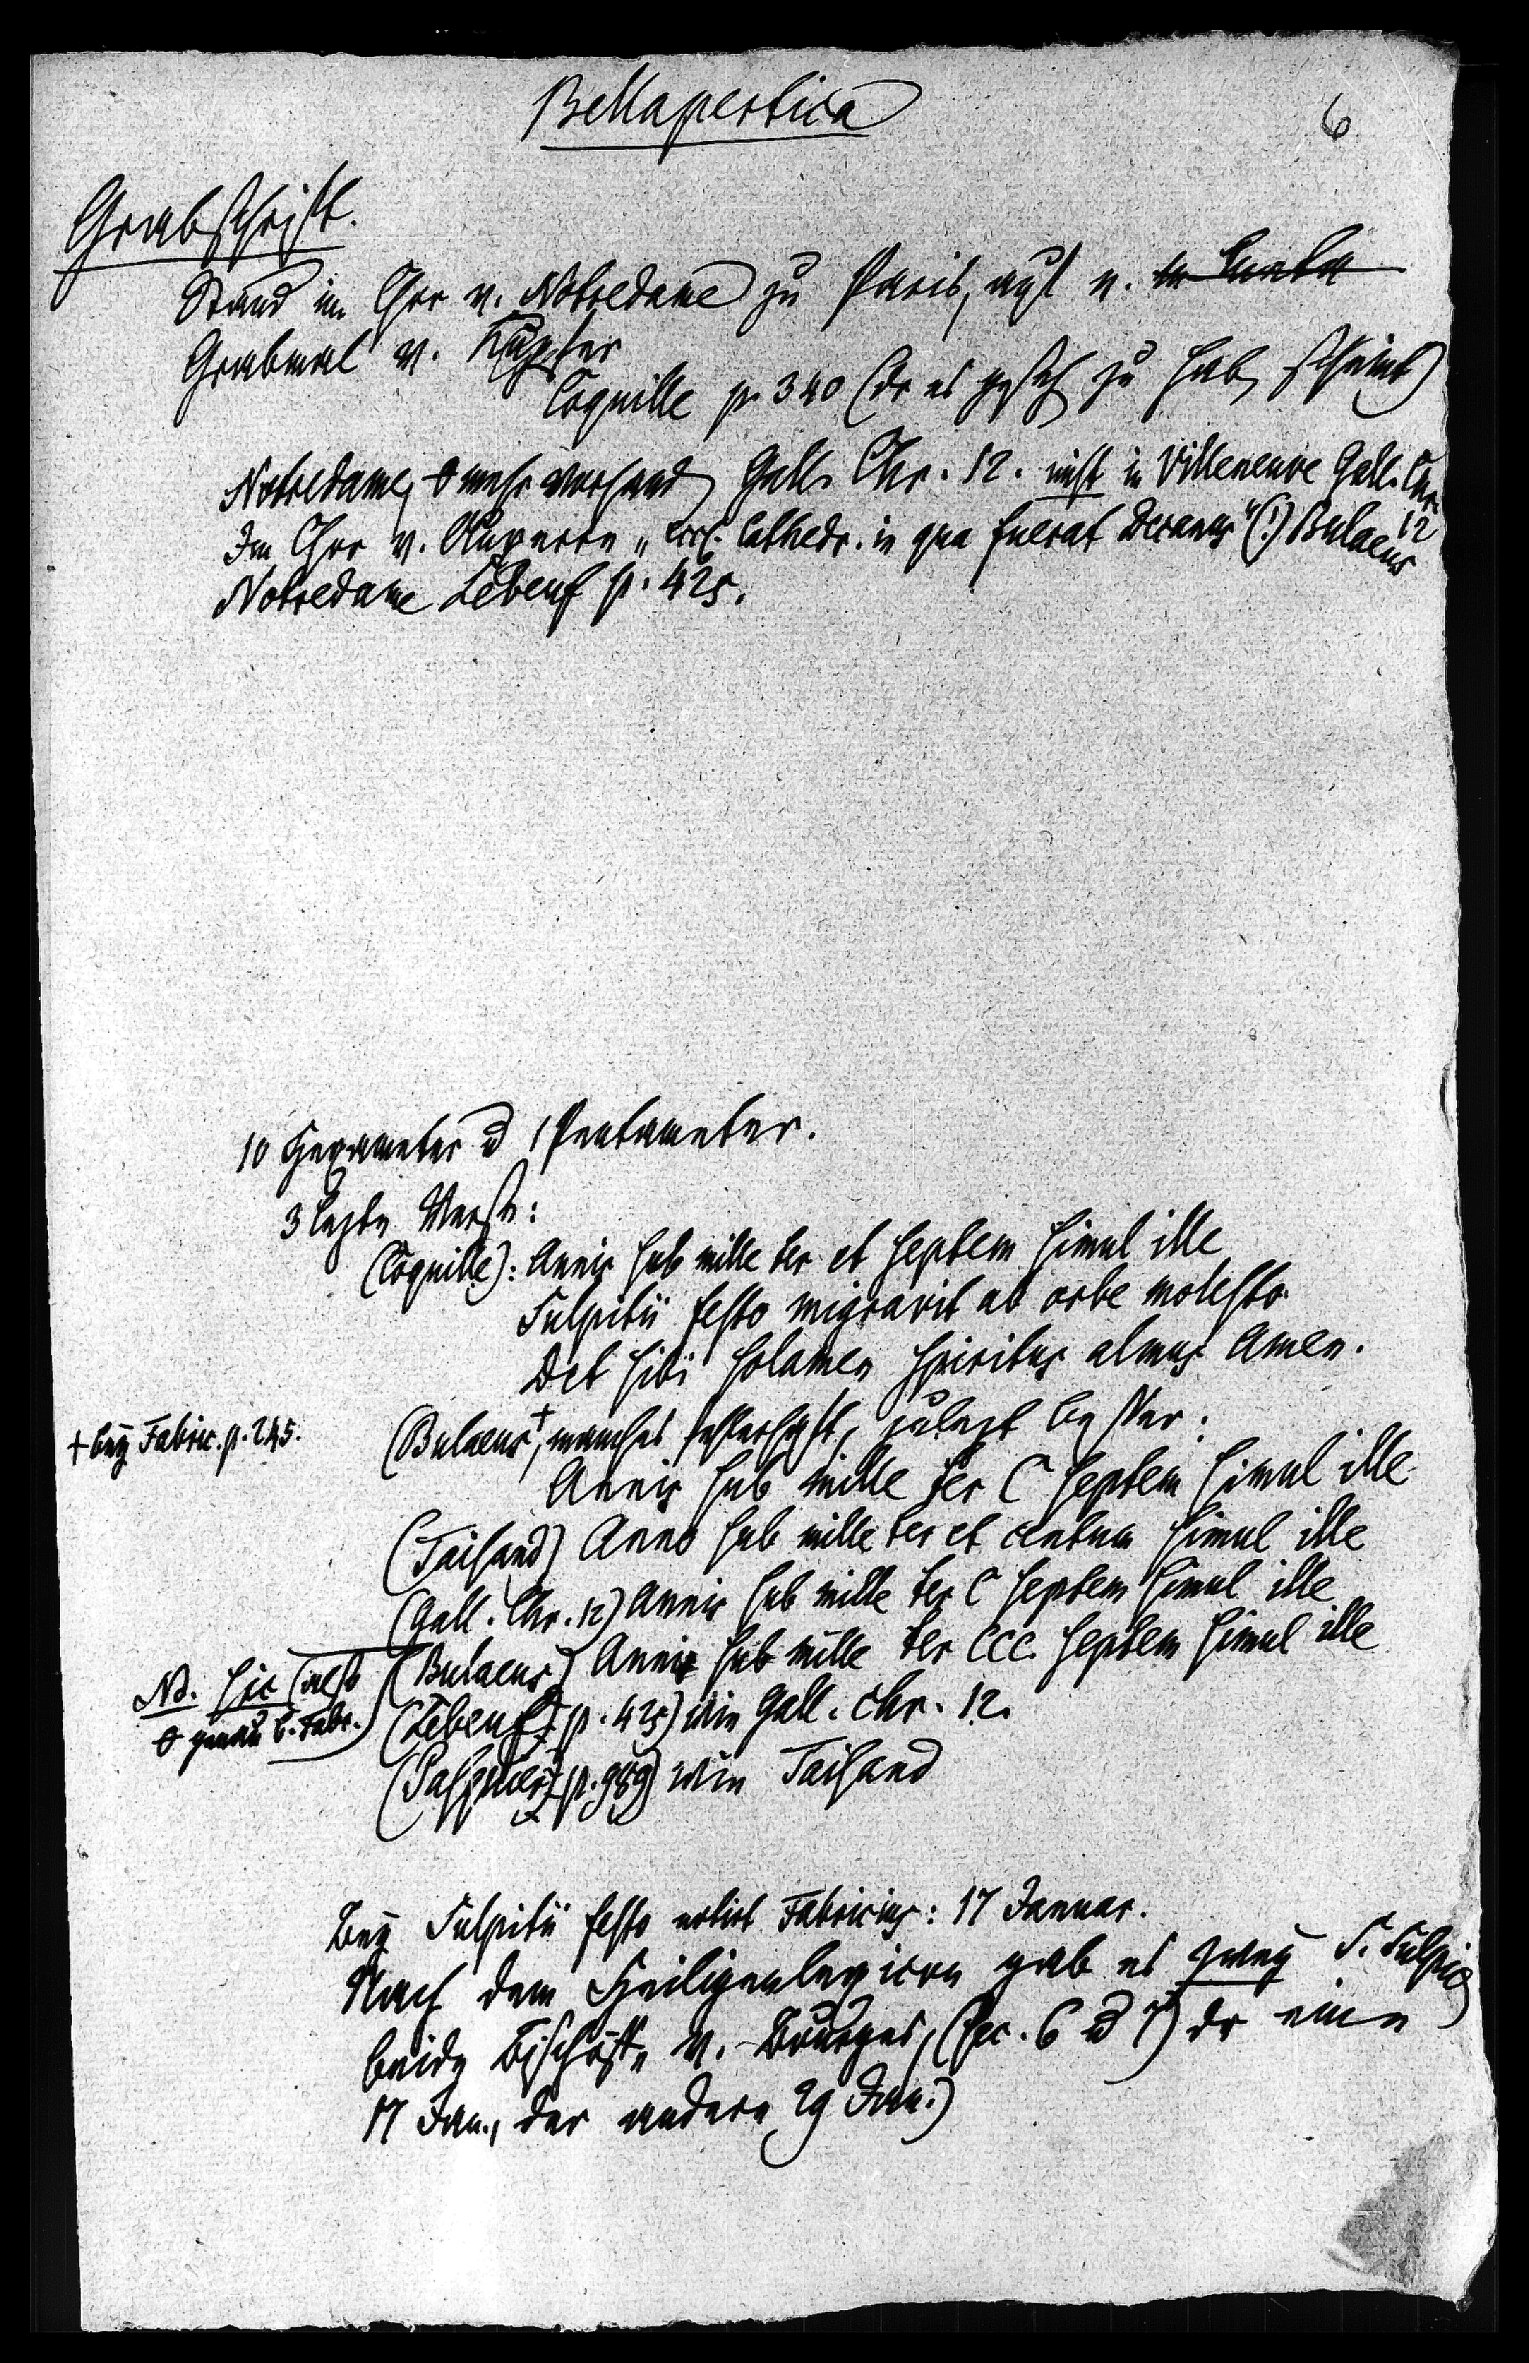 Bellapertica
6
Grabschrift.
Stand im Chor v. Notredame zu Paris, auf e.
Grabmal v. Kupfer
Coquille p. 340 (der es geseh zu hab scheint)
Notredame, 0 mehr vorhand Gall. Chr. 12. nicht in Villeneuve Gall. Chr. 12
Im Chor v. Auxerre „Eccl. Cathedr. in qua fuerat Decanus“ (!) Bulaeus
Notredame Lebeuf p. 425.
10 Hexameter u 1 Pentameter.
3 lezte Verse:
(Coquille): Annis sub mille ter et septem simul ille
Sulpitii festo migravit ab orbe molesto
Det sibi solamen spiritus almus Amen.
+ bey Fabric. p. 245.
(Bulaeus+, manches fehlerhaft, zulezt besser:
Annis sub mille ter C septem simul ille
(Taisand) Anno sub mille ter et centum simul ille
(Gall. Chr. 12) Annis sub mille ter C septem simul ille
(Bulaeus) Annis sub mille ter CCC. septem simul ille
NB. sic (also
0 genau b. Fabr.)
(Lebeuf p. 425) wie Gall. Chr. 12.
(Pasquier p. 989) wie Taisand
Bey Sulpitii festo notirt Fabricius: 17 Januar.
Nach dem Heiligenlexicon gab es zwey S. Sulpic
beide Bischöffe v. Bourges, (sec. 6 u 7) der eine
17 Jan., der andere 29 Jan.)